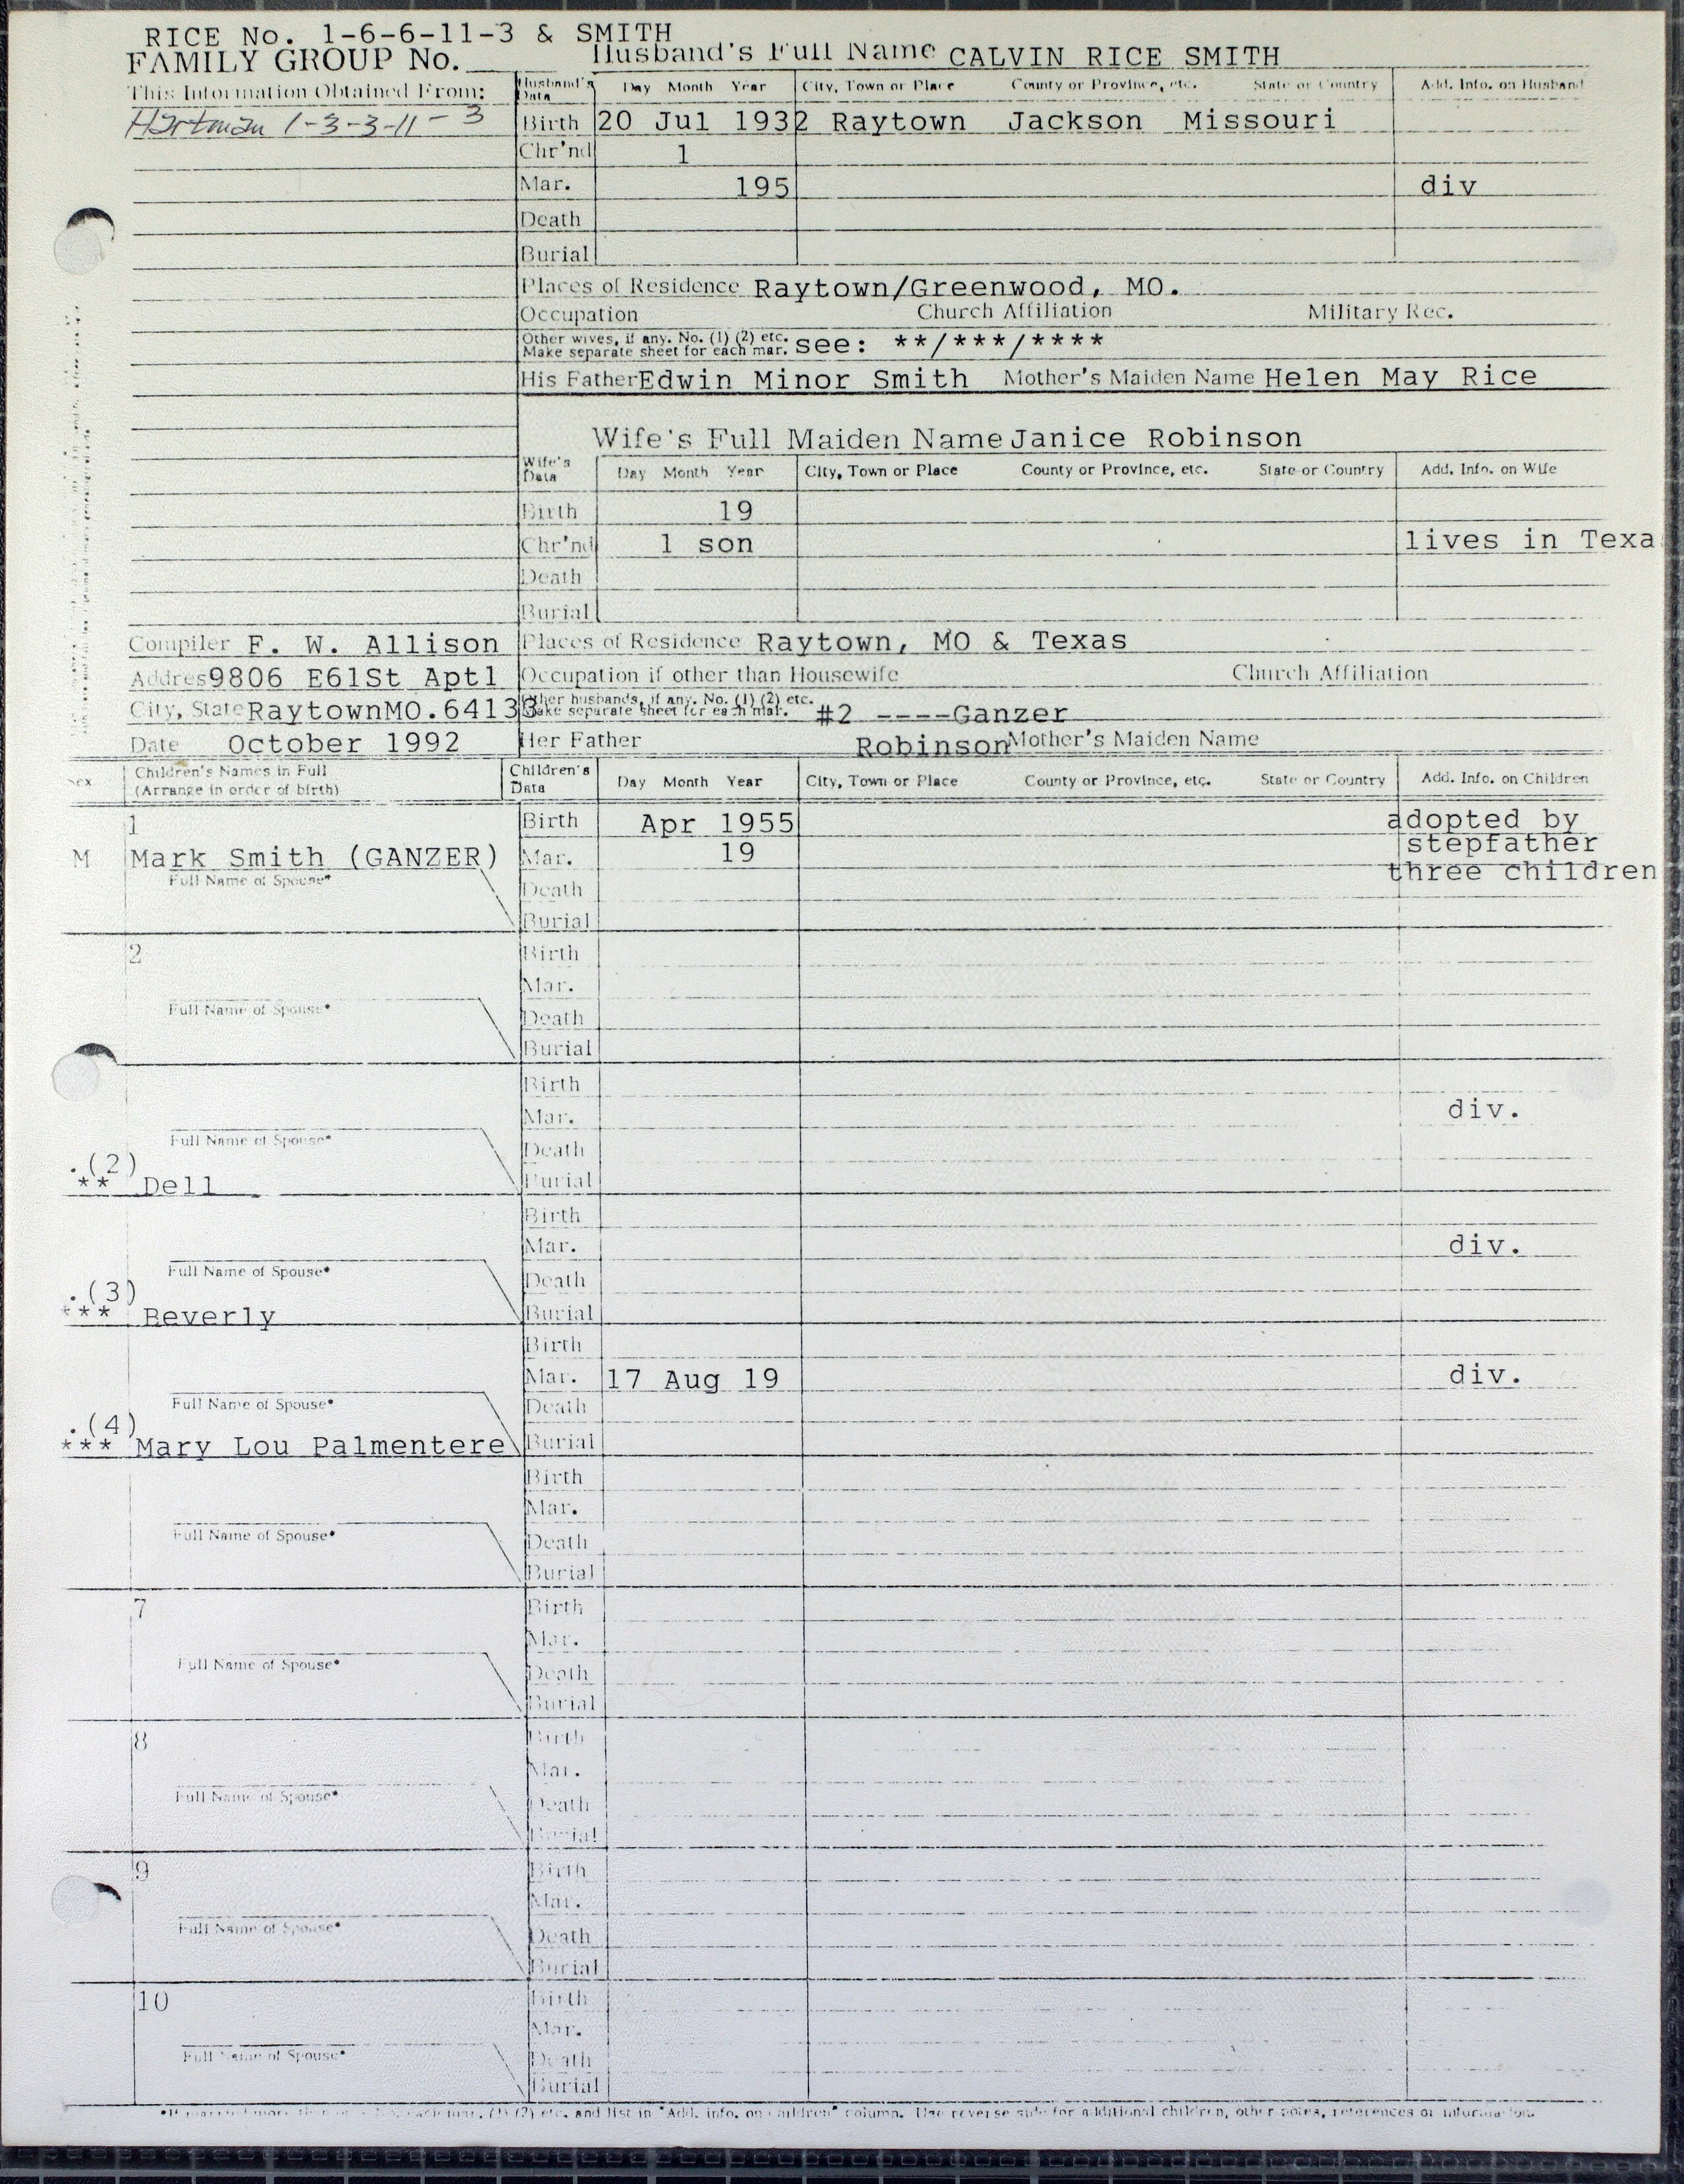 RICE No. 1-6-6-11-3 & SMITH
FAMILY GROUP No. Husband's Full Name CALVIN RICE SMITH
This Information Obtained From: Husband's Data Day Month Year City, Town or Place County or Province, etc. State or Country Add. Info. on Husband
Hartman 1-3-3-11-3 Birth 20 Jul 1932 Raytown Jackson Missouri
Chr'nd 1
Mar. 195 div
Death
Burial
Places of Residence Raytown/Greenwood, MO.
Occupation Church Affiliation Military Rec.
Other wives, if any. No. (1) (2) etc.
Make separate sheet for each mar. see: **/***/****
His Father Edwin Minor Smith Mother's Maiden Name Helen May Rice
Wife's Full Maiden Name Janice Robinson
Wife's Data Day Month Year City, Town or Place County or Province, etc. State or Country Add. Info. on Wife
Birth 19
Chr'nd 1 son lives in Texa
Death
Burial
Compiler F. W. Allison Places of Residence Raytown, MO & Texas
Addres 9806 E61St Apt1 Occupation if other than Housewife Church Affiliation
City, State RaytownMO.64133 Other husbands, if any. No. (1) (2) etc.
Make separate sheet for each mar. #2 ----Ganzer
Date October 1992 Her Father Robinson Mother's Maiden Name
Sex Children's Names in Full
(Arrange in order of birth) Children's Data Day Month Year City, Town or Place County or Province, etc. State or Country Add. Info. on Children
1 Birth Apr 1955 adopted by
M Mark Smith (GANZER) Mar. 19 stepfather
Full Name of Spouse* Death three children
Burial
2 Birth
Mar.
Full Name of Spouse* Death
Burial
Birth
Mar. div.
Full Name of Spouse* Death
.(2)
** Dell Burial
Birth
Mar. div.
Full Name of Spouse* Death
.(3)
*** Beverly Burial
Birth
Mar. 17 Aug 19 div.
Full Name of Spouse* Death
.(4)
*** Mary Lou Palmentere Burial
Birth
Mar.
Full Name of Spouse* Death
Burial
7 Birth
Mar.
Full Name of Spouse* Death
Burial
8 Birth
Mar.
Full Name of Spouse* Death
Burial
9 Birth
Mar.
Full Name of Spouse* Death
Burial
10 Birth
Mar.
Full Name of Spouse* Death
Burial
(1) (2) etc. and list in "Add. info. on children" column. Use reverse side for additional children, other notes, references or information.